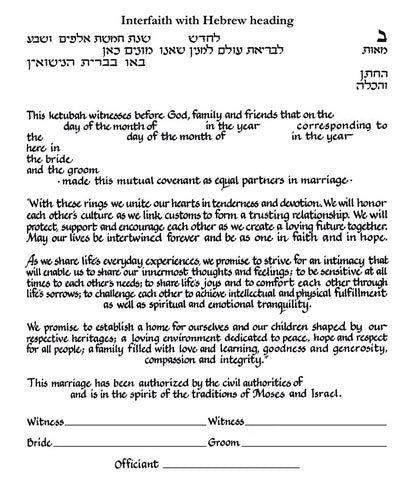 Interfaith with Hebrew heading
ב לחדש שנת חמשת אלפים ושבע
מאות לבריאת עולם למנין שאנו מונים כאן
באו בברית הנישואין
החתן
והכלה
This ketubah witnesses before God, family and friends that on the
day of the month of in the year corresponding to
the day of the month of in the year
here in
the bride
and the groom
· made this mutual covenant as equal partners in marriage ·
"With these rings we unite our hearts in tenderness and devotion. We will honor
each other's culture as we link customs to form a trusting relationship. We will
protect, support and encourage each other as we create a loving future together.
May our lives be intertwined forever and be as one in faith and in hope.
As we share life's everyday experiences, we promise to strive for an intimacy that
will enable us to share our innermost thoughts and feelings; to be sensitive at all
times to each other's needs; to share life's joys and to comfort each other through
life's sorrows; to challenge each other to achieve intellectual and physical fulfillment
as well as spiritual and emotional tranquility.
We promise to establish a home for ourselves and our children shaped by our
respective heritages; a loving environment dedicated to peace, hope and respect
for all people; a family filled with love and learning, goodness and generosity,
compassion and integrity."
This marriage has been authorized by the civil authorities of
and is in the spirit of the traditions of Moses and Israel.
Witness Witness
Bride Groom
Officiant